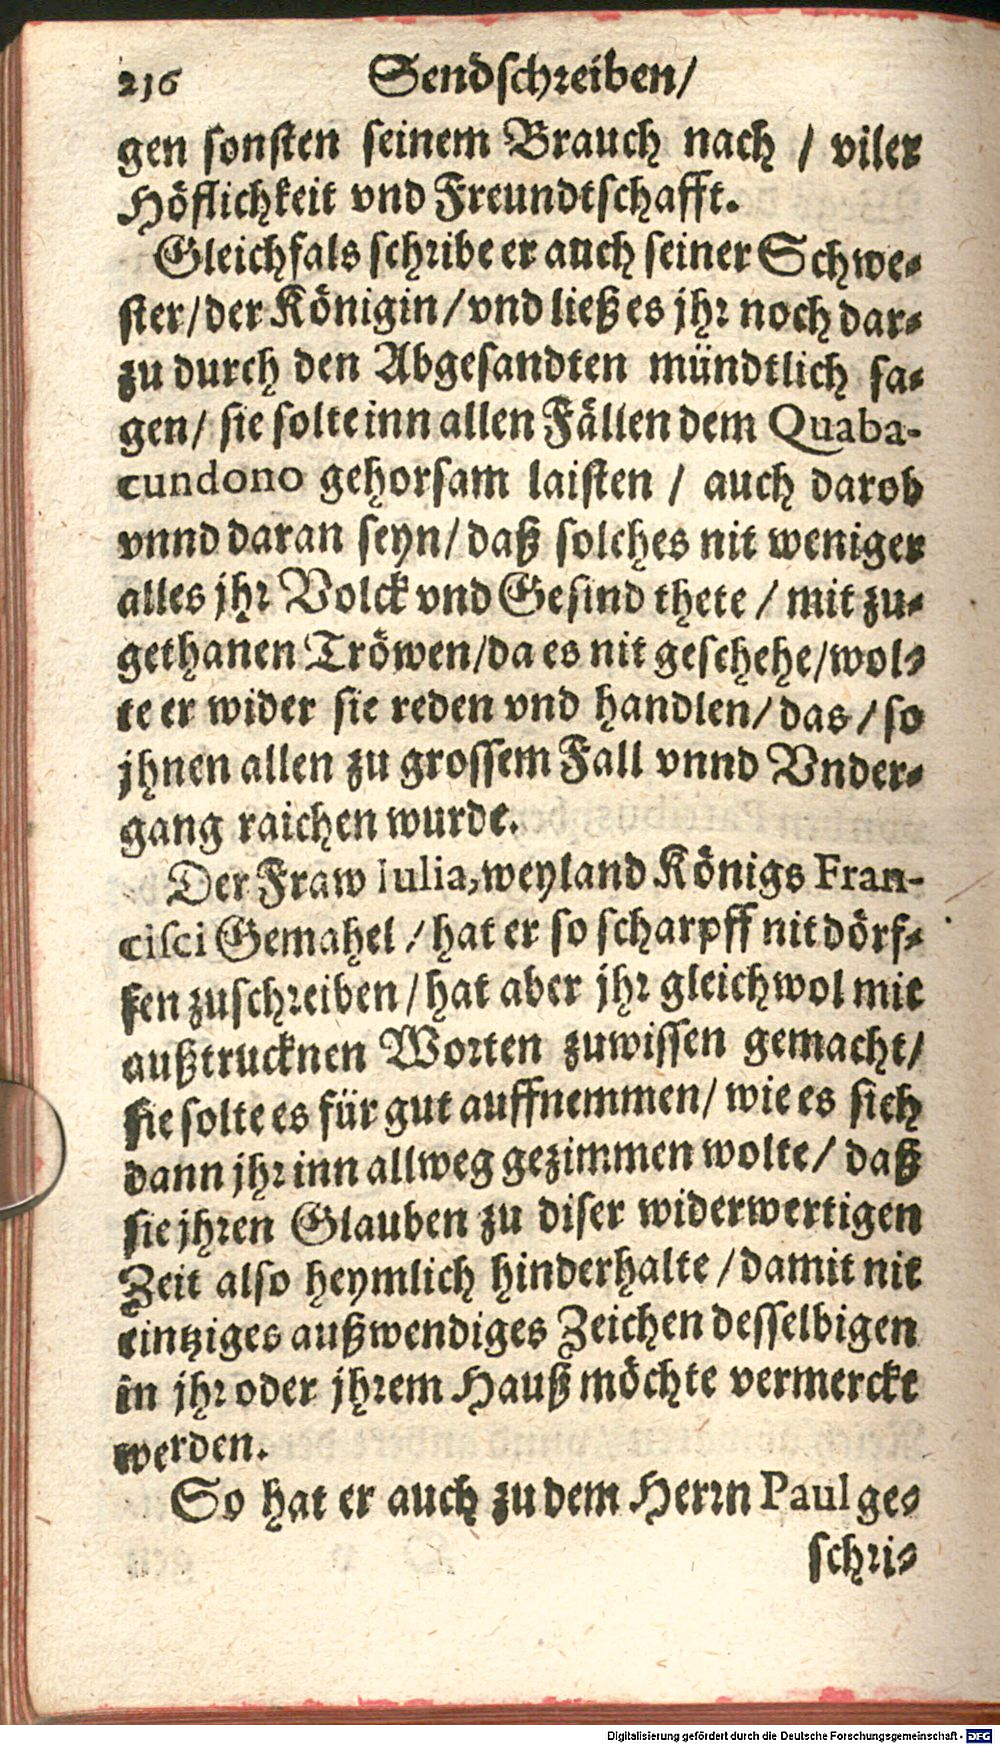 216 Sendschreiben/
gen sonsten seinem Brauch nach / viler
Höflichkeit vnd Freundtschafft.
Gleichfals schribe er auch seiner Schwe-
ster/der Königin/vnd ließ es jhr noch dar-
zu durch den Abgesandten mündtlich sa-
gen/ sie solte inn allen Fällen dem Quaba-
cundono gehorsam laisten / auch darob
vnnd daran seyn/daß solches nit weniger
alles jhr Volck vnd Gesind thete / mit zu-
gethanen Tröwen/da es nit geschehe/wol-
te er wider sie reden vnd handlen/das/so
jhnen allen zu grossem Fall vnnd Vnder-
gang raichen wurde.
Der Fraw Iulia, weyland Königs Fran-
cisci Gemahel / hat er so scharpff nit dörf-
fen zuschreiben/hat aber jhr gleichwol mit
außtrucknen Worten zuwissen gemacht/
sie solte es für gut auffnemmen/wie es sich
dann jhr inn allweg gezimmen wolte/ daß
sie jhren Glauben zu diser widerwertigen
Zeit also heymlich hinderhalte /damit nit
eintziges außwendiges Zeichen desselbigen
in jhr oder jhrem Hauß möchte vermerckt
werden.
So hat er auch zu dem Herrn Paul ge-
schri-
Digitalisierung gefördert durch die Deutsche Forschungsgemeinschaft - DFG